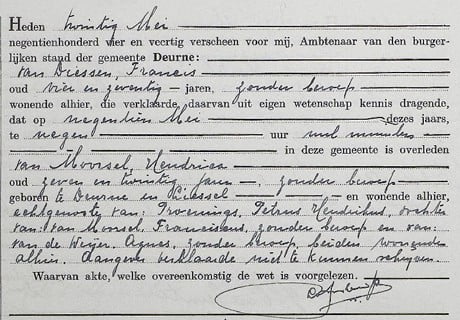 Heden twintig Mei
negentienhonderd vier en veertig verscheen voor mij, Ambtenaar van den burger-
lijken stand der gemeente Deurne:
van Diessen, Francis
oud vier en zeventig jaren, zonder beroep
wonende alhier, die verklaarde, daarvan uit eigen wetenschap kennis dragende,
dat op negentien Mei dezes jaars,
te negen uur nul minuten
in deze gemeente is overleden
van Moorsel, Hendrica
oud zeven en twintig jaren, zonder beroep
geboren te Deurne en Liessel en wonende alhier,
echtgenoote van: Provenings, Petrus Hendrikus, dochter
van: van Moorsel, Franciscus, zonder beroep en van:
van de Weijer, Agnes, zonder beroep, beiden wonende
alhier. Aangever verklaarde niet te kunnen schrijven.
Waarvan akte, welke overeenkomstig de wet is voorgelezen.